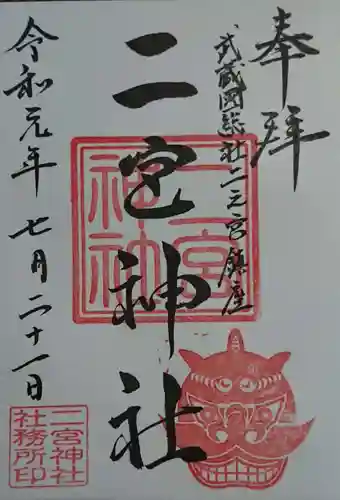 奉拝
武蔵国総社二之宮鎮座
二宮神社
二宮
神社
令和元年七月二十一日
二宮神社
社務所印